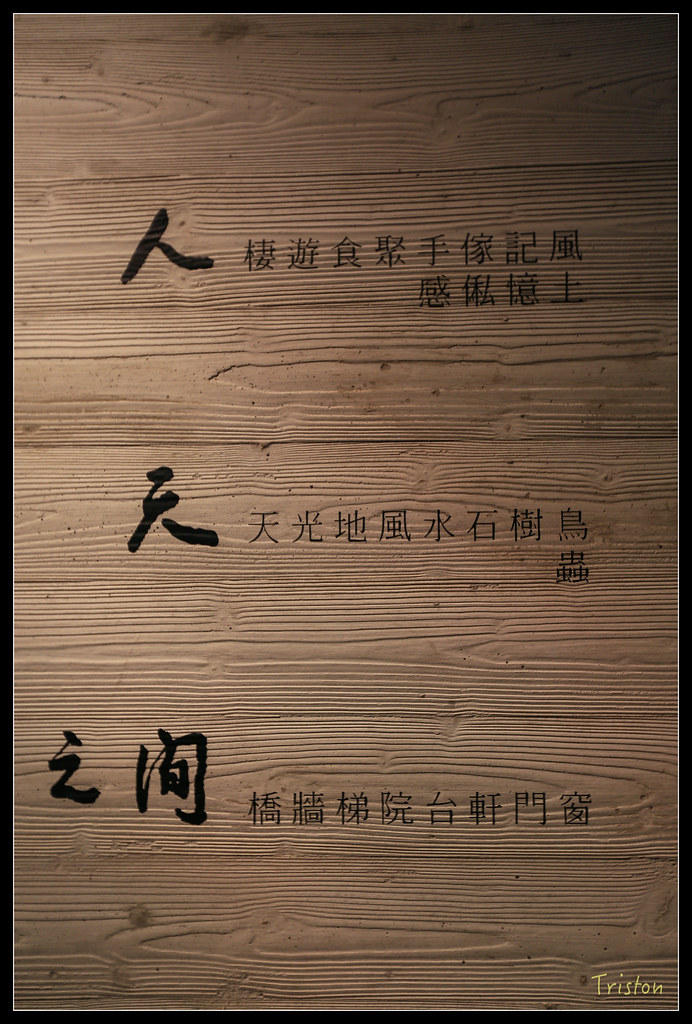 人
風土
記憶
傢俬
手感
聚
食
遊
棲
天
鳥蟲
樹
石
水
風
地
光
天
之間
窗
門
軒
台
院
梯
牆
橋
Triston